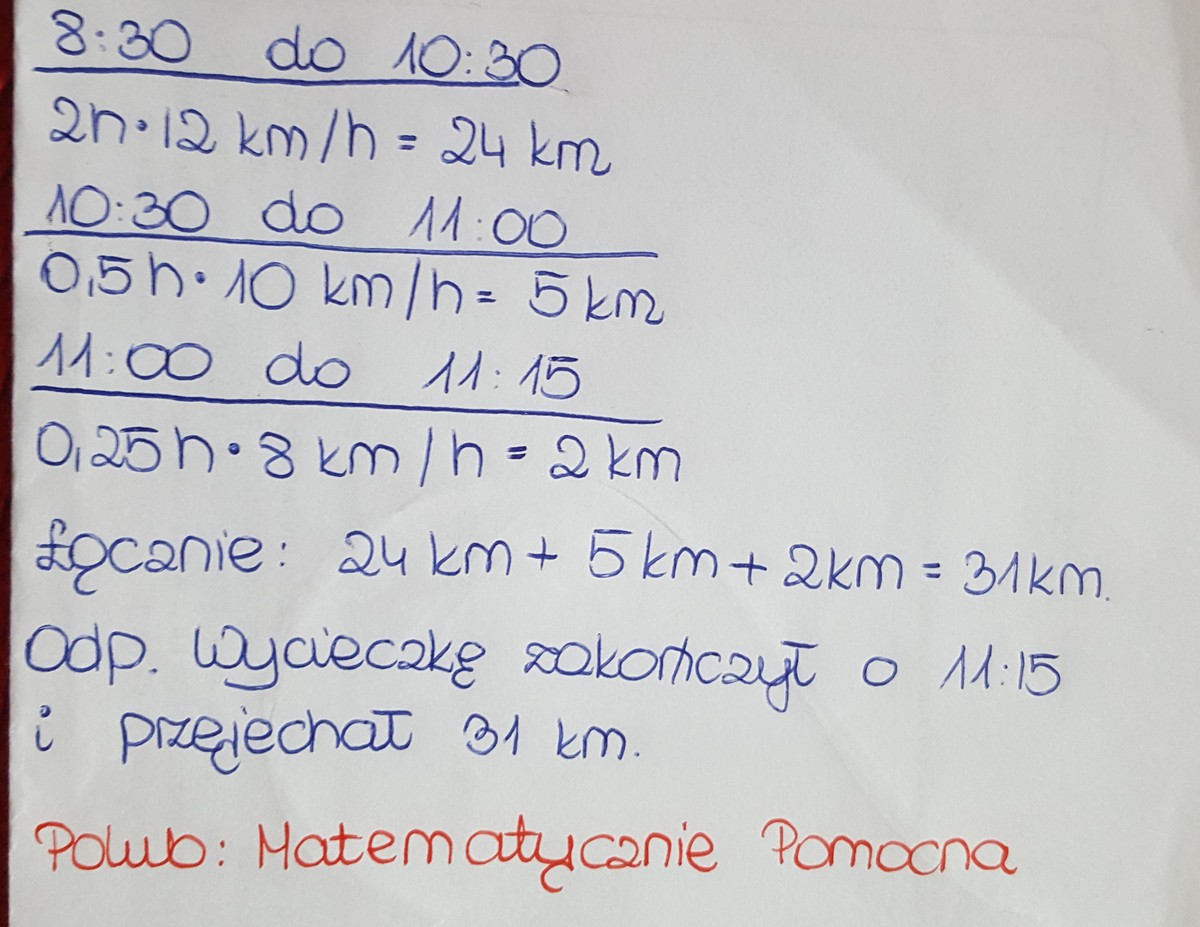 8:30 do 10:30
2h·12 km/h = 24 km
10:30 do 11:00
0,5h·10 km/h = 5 km
11:00 do 11:15
0,25h·8 km/h = 2 km
Łącznie: 24 km + 5 km + 2 km = 31 km.
Odp. Wycieczkę zakończył o 11:15
i przejechał 31 km.
Polub: Matematycznie Pomocna